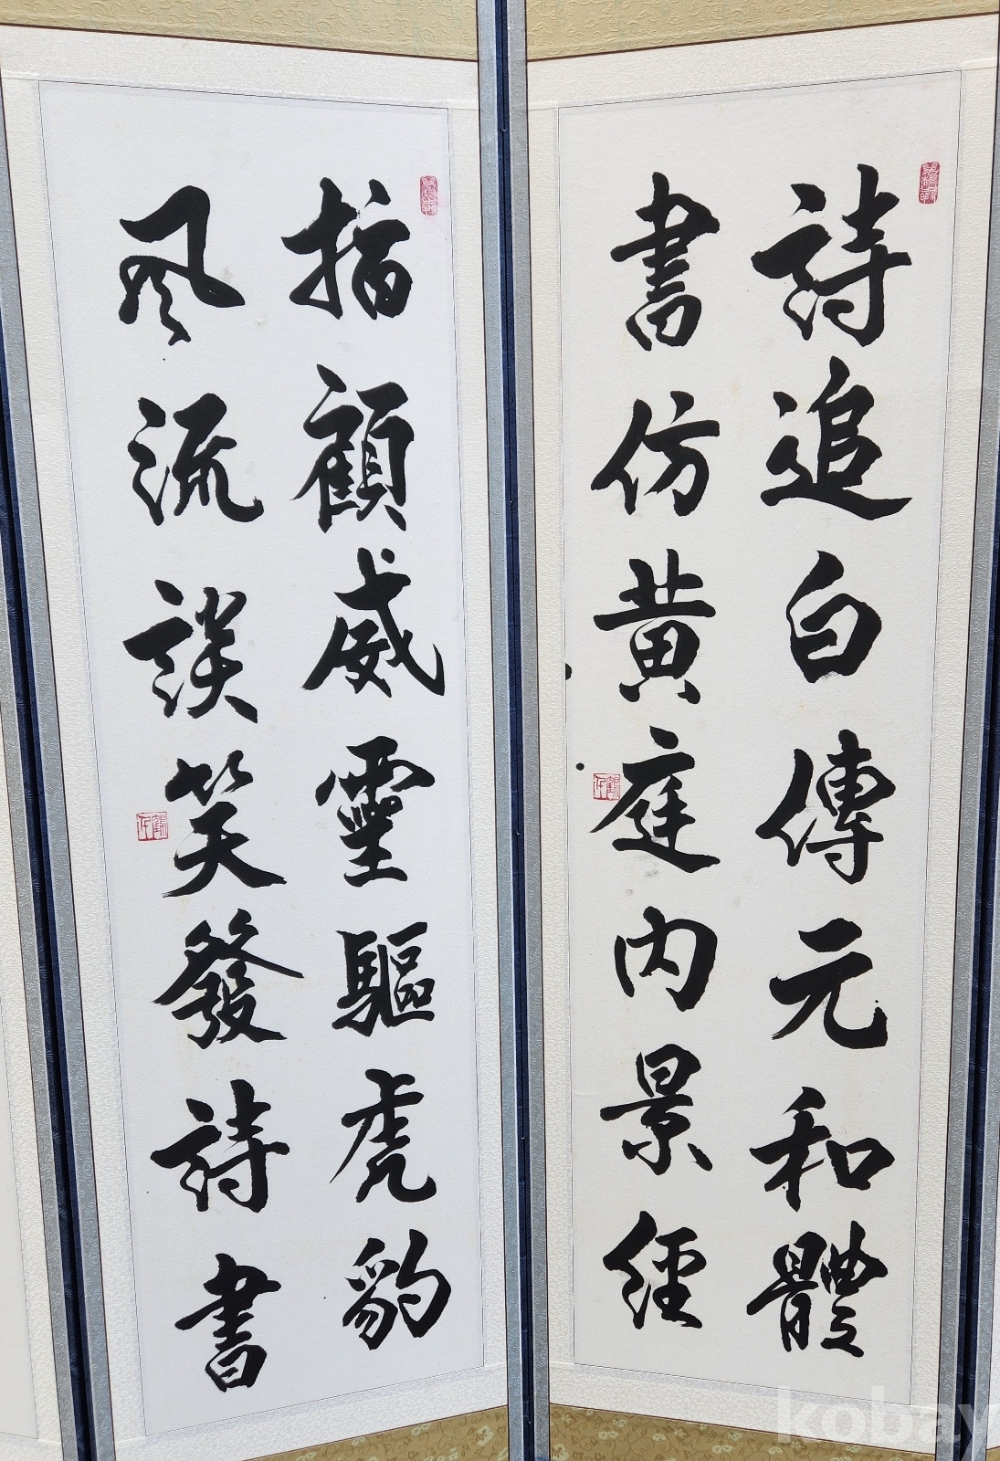 詩追白傳元和體
書仿黃庭內景經
指顧威靈驅虎豹
風流談笑發詩書
kobay